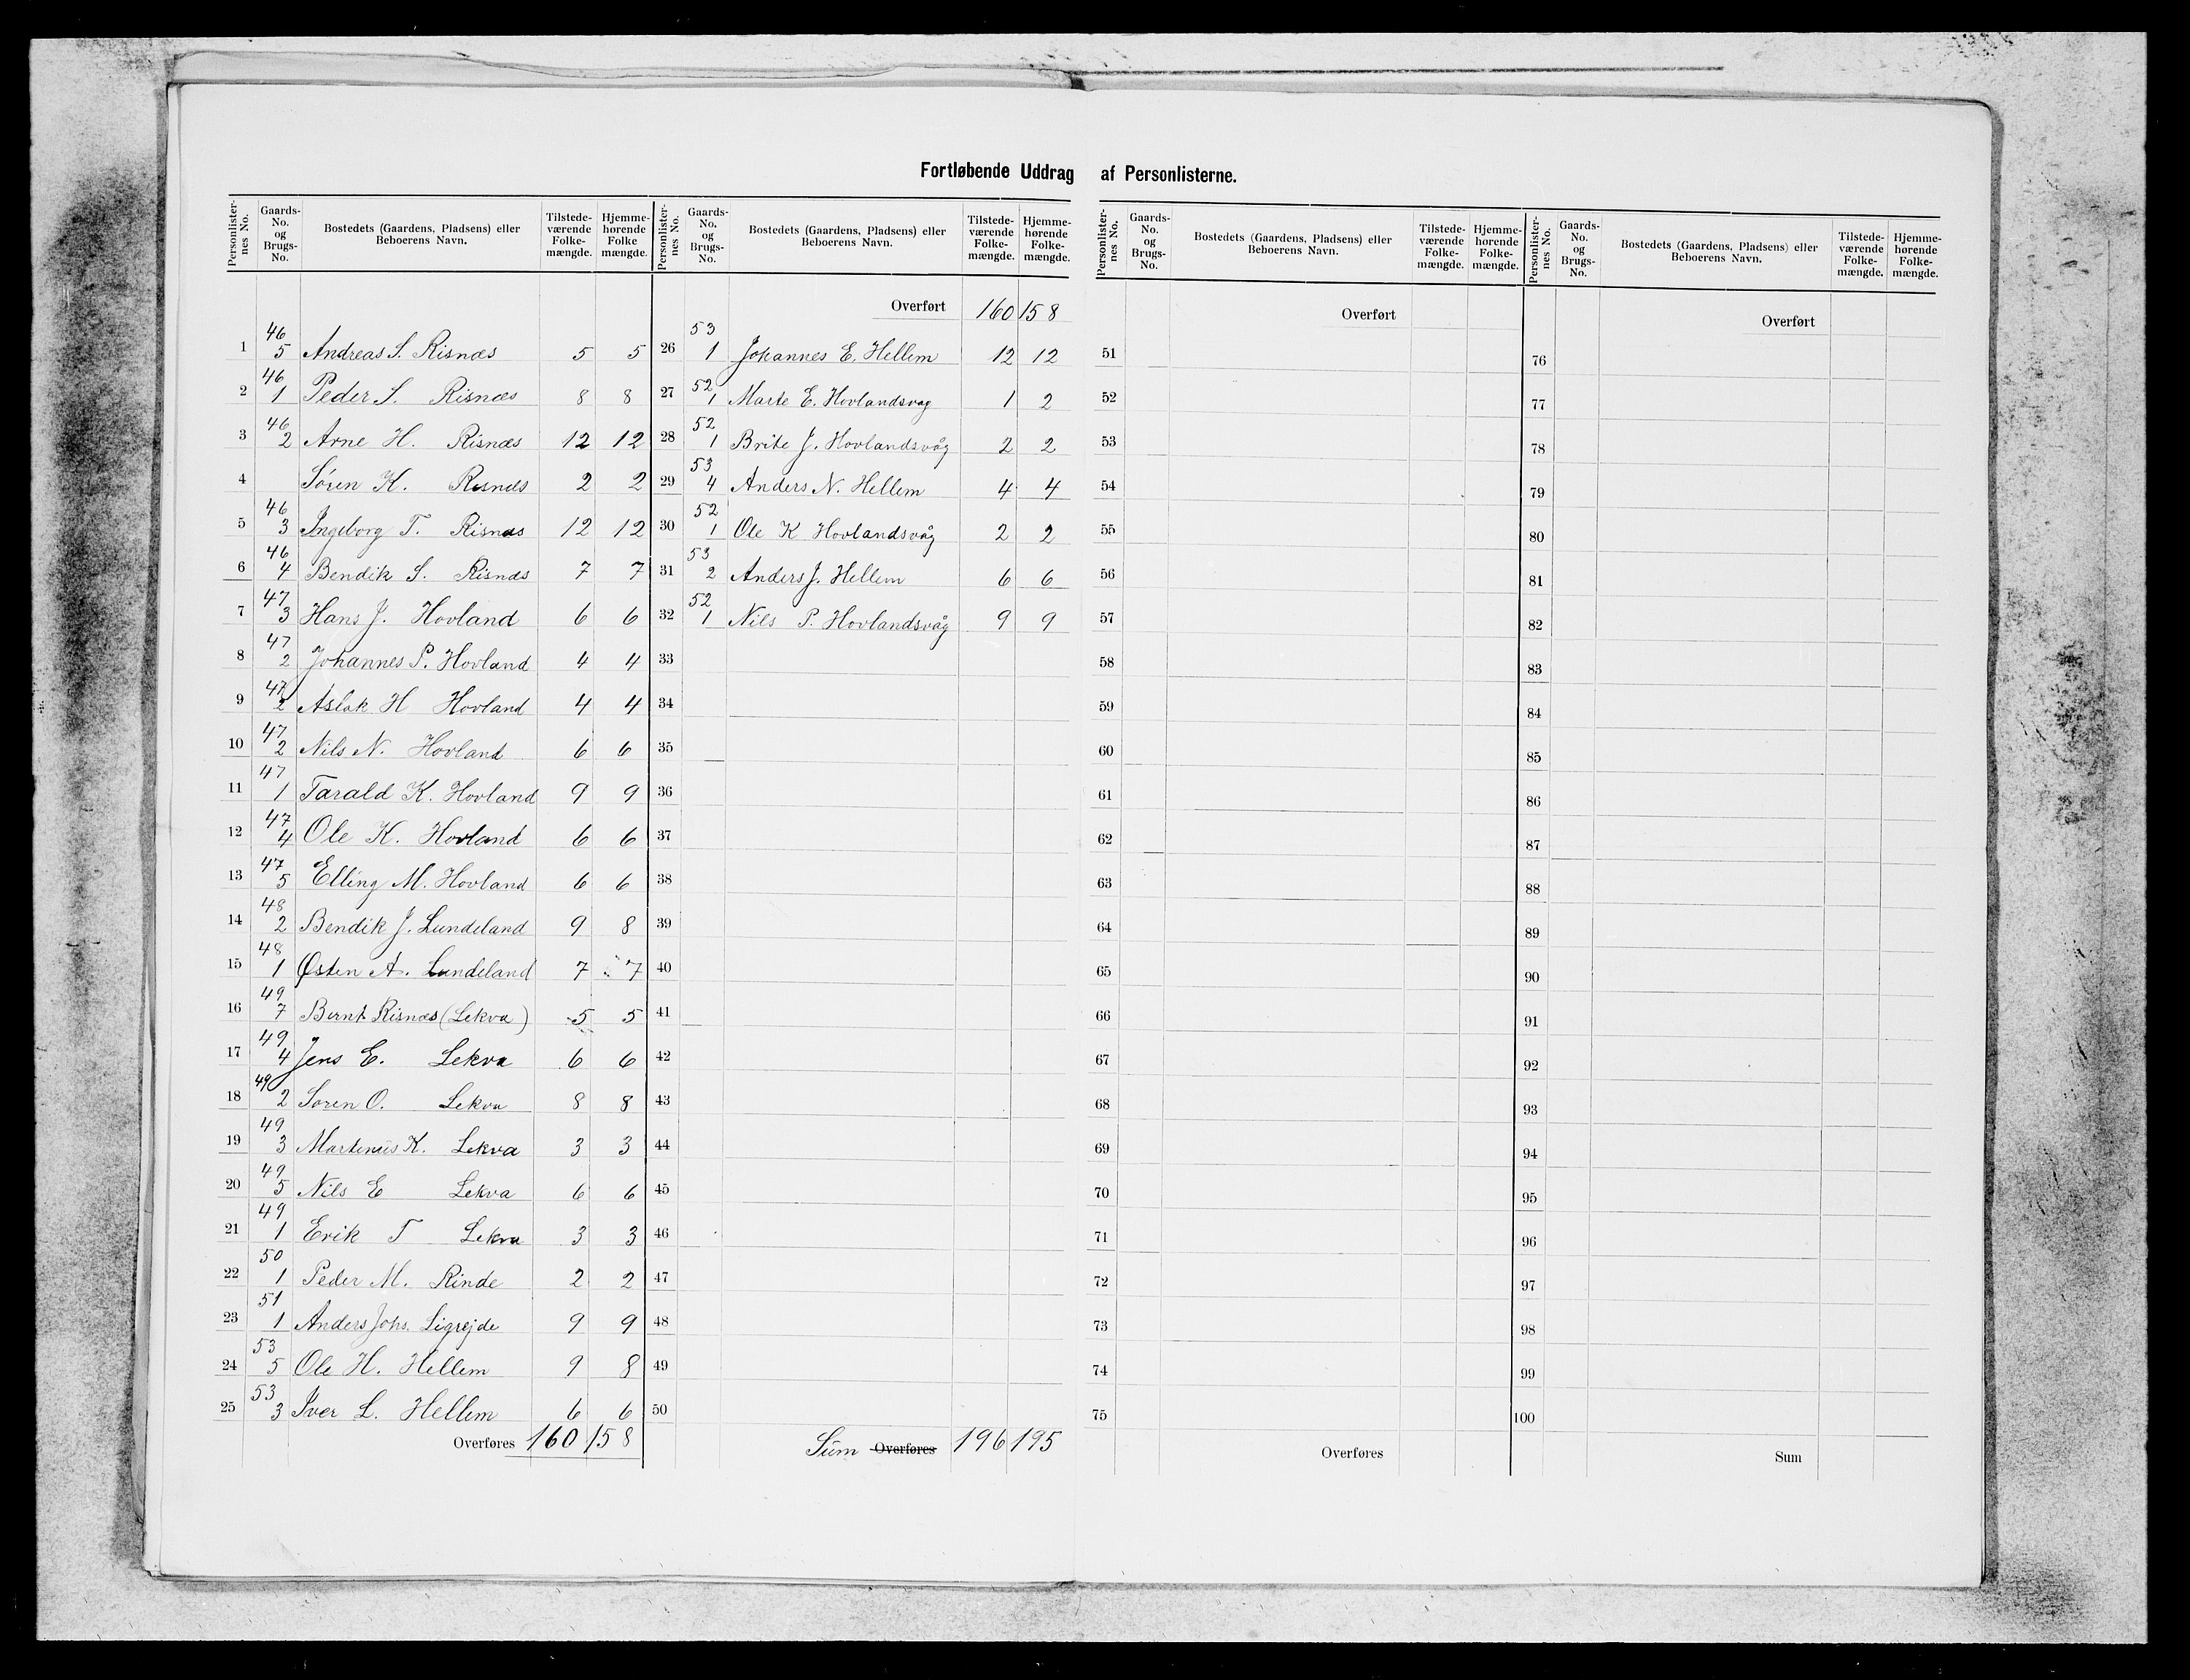 Fortløbende Uddrag af Personlisterne.
Personlisternes No. Gaards-No. og Brugs-No. Bostedets (Gaardens, Pladsens) eller Beboerens Navn. Tilstedeværende Folkemængde. Hjemmehørende Folkemængde.
1 46 5 Andreas S. Risnæs 5 5
2 46 1 Peder S. Risnæs 8 8
3 46 2 Arne H. Risnæs 12 12
4 Sören K. Risnæs 2 2
5 46 3 Ingeborg T. Risnæs 12 12
6 46 4 Bendik S. Risnæs 7 7
7 47 3 Hans J. Hovland 6 6
8 47 2 Johannes P. Hovland 4 4
9 47 2 Aslak H Hovland 4 4
10 47 2 Nils N. Hovland 6 6
11 47 1 Tarald K. Hovland 9 9
12 47 4 Ole K. Hovland 6 6
13 47 5 Elling M. Hovland 6 6
14 48 2 Bendik J. Lundeland 9 8
15 48 1 Østen A. Lundeland 7 7
16 49 7 Bernt Risnæs (Lekva) 5 5
17 49 4 Jens E. Lekva 6 6
18 49 2 Soren O. Lekva 8 8
19 49 3 Martenus K. Lekva 3 3
20 49 5 Nils E Lekva 6 6
21 49 1 Erik T Lekva 3 3
22 50 1 Peder M. Rinde 2 2
23 51 1 Anders Johs. Ligrejde 9 9
24 53 5 Ole H. Hellem 9 8
25 53 3 Iver L. Hellem 6 6
Overføres 160 158
Personlisternes No. Gaards-No. og Brugs-No. Bostedets (Gaardens, Pladsens) eller Beboerens Navn. Tilstedeværende Folkemængde. Hjemmehørende Folkemængde.
Overført 160 158
26 53 1 Johannes E. Hellem 12 12
27 52 1 Marte E. Hovlandsvag 1 2
28 52 1 Brite J. Hovlandsvåg 2 2
29 53 4 Anders N. Hellem 4 4
30 52 1 Ole K Hovlandsvåg 2 2
31 53 2 Anders J. Hellem 6 6
32 52 1 Nils P. Hovlandsvåg 9 9
33
34
35
36
37
38
39
40
41
42
43
44
45
46
47
48
49
50
Sum Overføres 196 195
Personlisternes No. Gaards-No. og Brugs-No. Bostedets (Gaardens, Pladsens) eller Beboerens Navn. Tilstedeværende Folkemængde. Hjemmehørende Folkemængde.
Overført
51
52
53
54
55
56
57
58
59
60
61
62
63
64
65
66
67
68
69
70
71
72
73
74
75
Overføres
Personlisternes No. Gaards-No. og Brugs-No. Bostedets (Gaardens, Pladsens) eller Beboerens Navn. Tilstedeværende Folkemængde. Hjemmehørende Folkemængde.
Overført
76
77
78
79
80
81
82
83
84
85
86
87
88
89
90
91
92
93
94
95
96
97
98
99
100
Sum